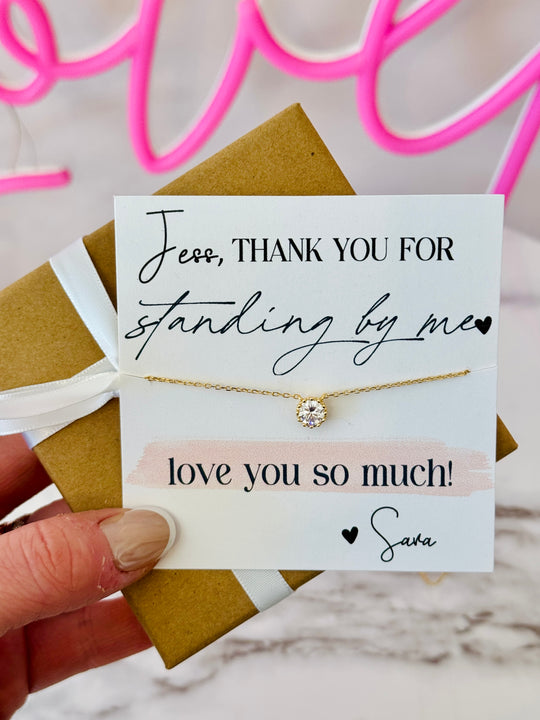 Jess, THANK YOU FOR
standing by me♥
love you so much!
♥ Sara